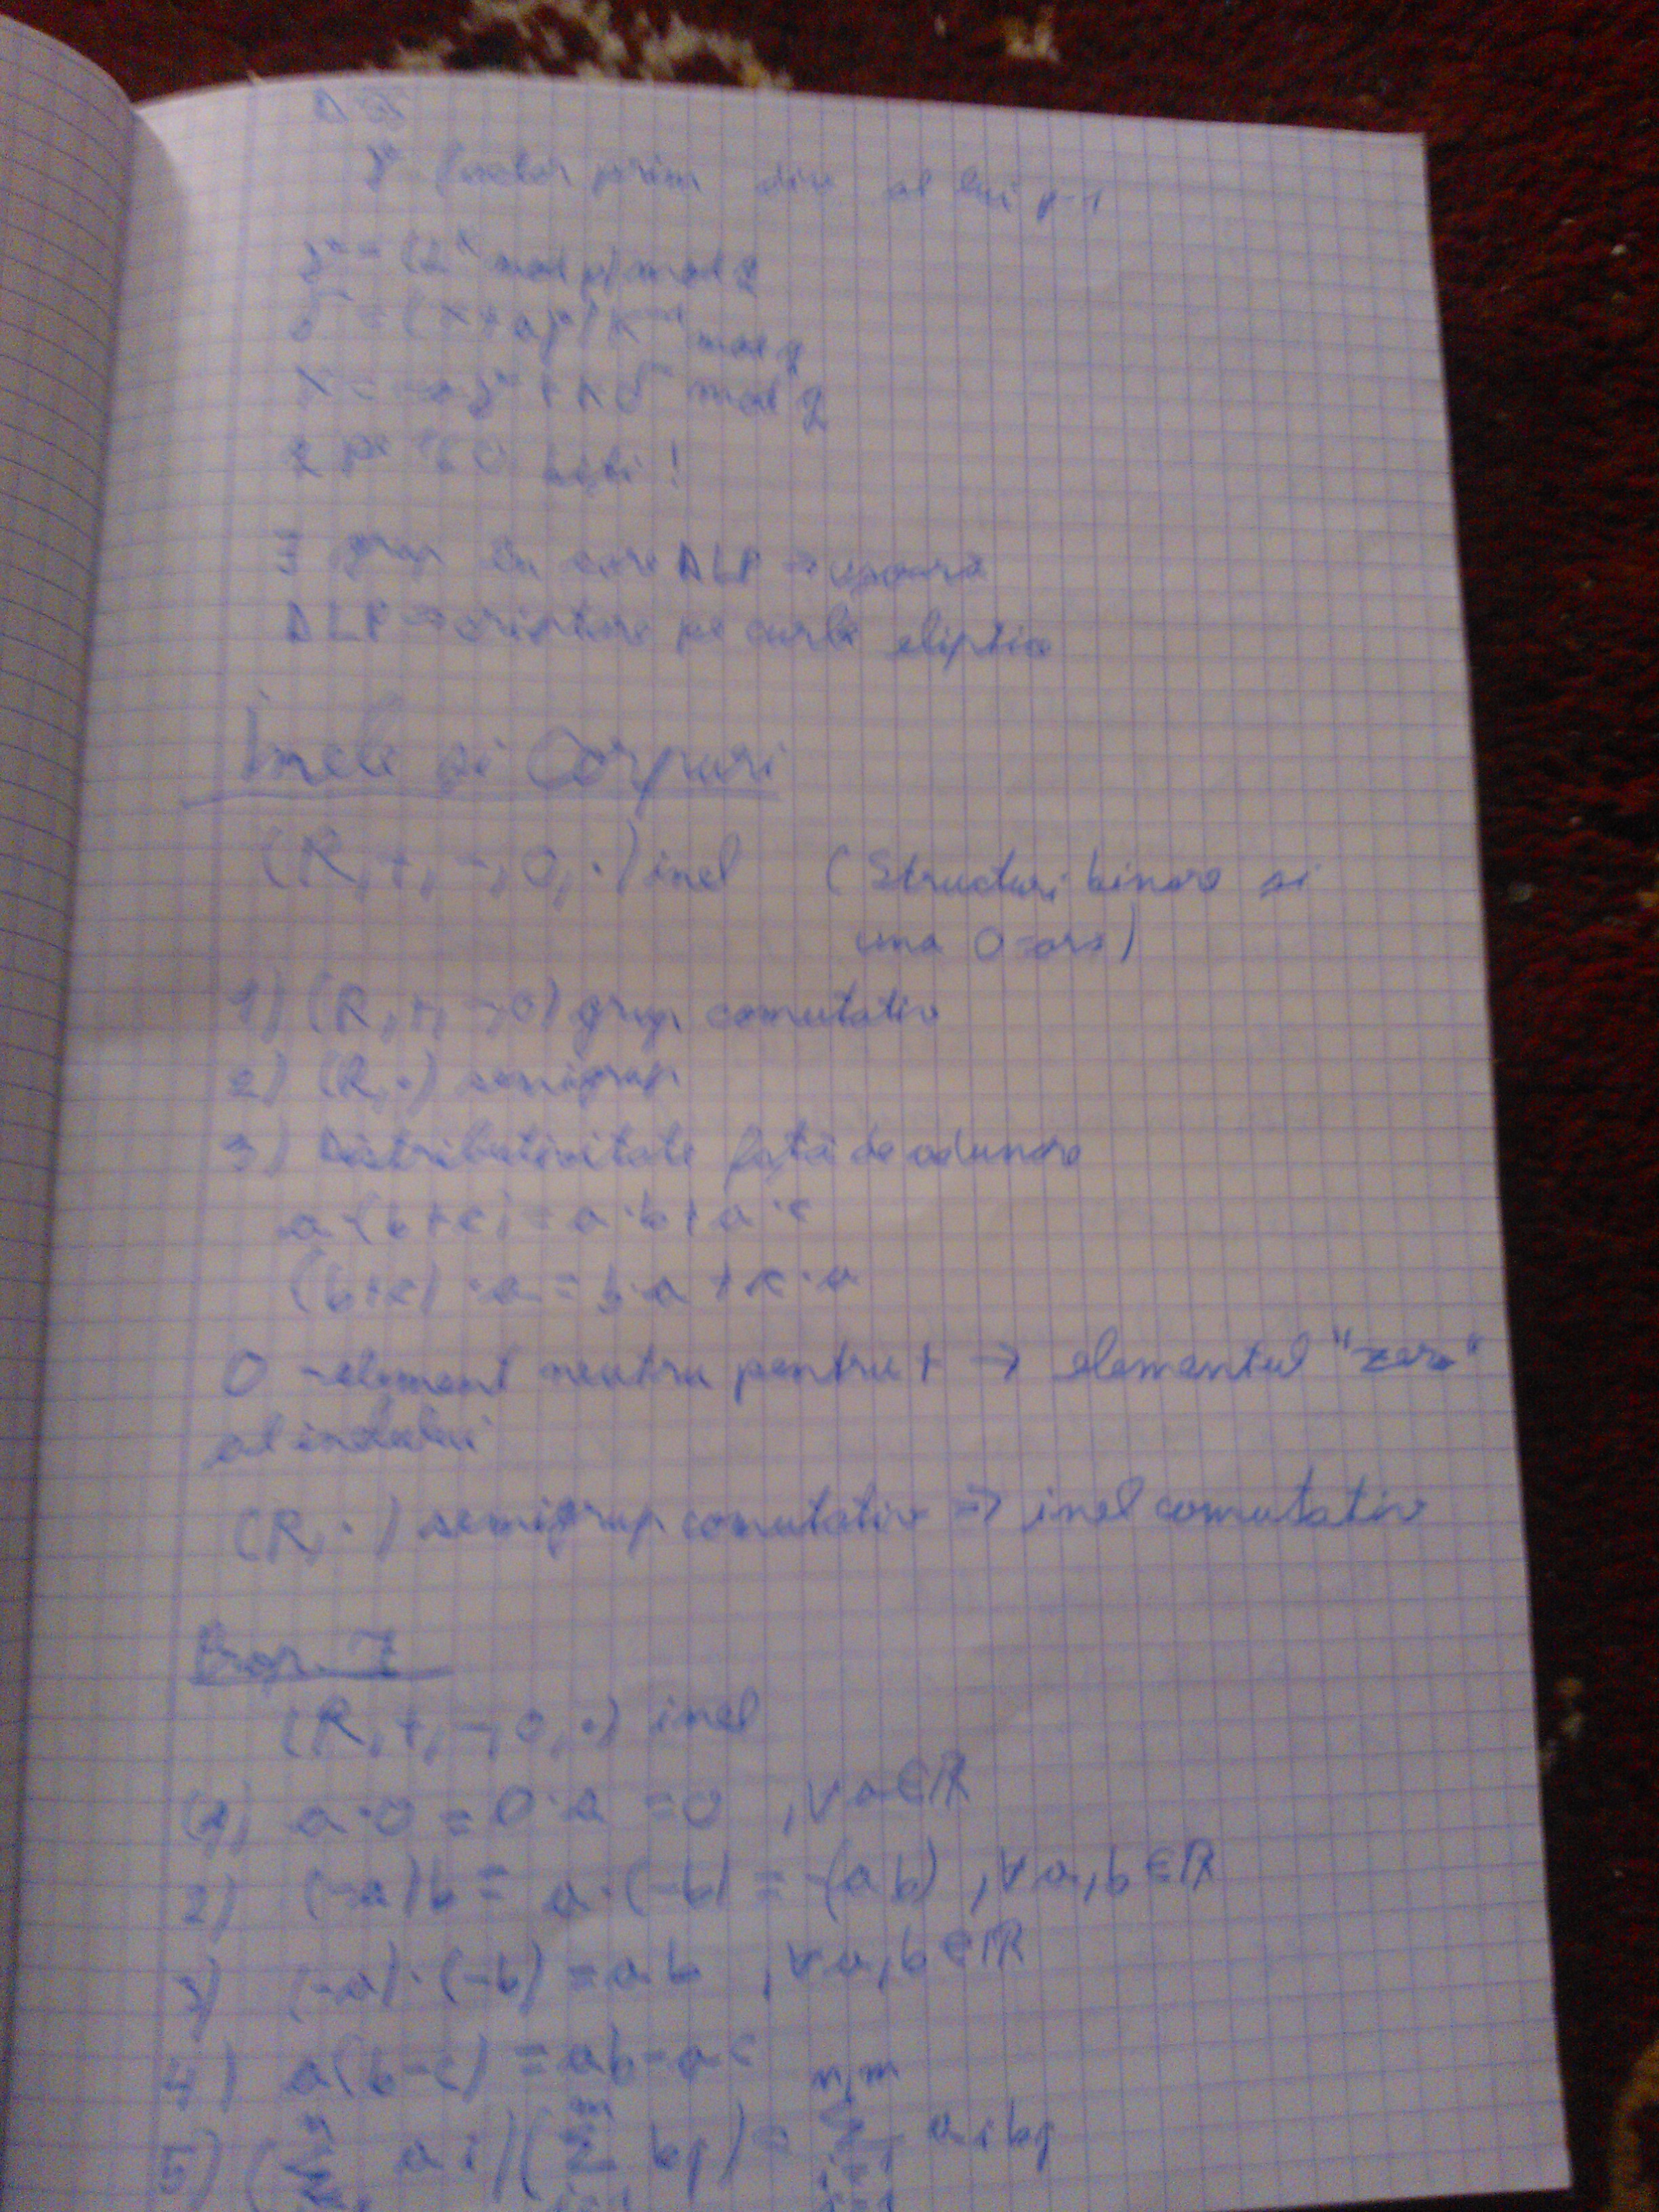 factor prim al lui p-1
mod p) mod q
mod q
mod q
160 biți!
∃ grup în care DLP → ușoară
DLP → criptare pe curbe eliptice
Inele și Corpuri
(R, +, -, 0, ·) inel (Structuri binare și
una 0-ară)
1) (R, +, -, 0) grup comutativ
2) (R, ·) semigrup
3) Distributivitate față de adunare
a·(b+c) = a·b + a·c
(b+c)·a = b·a + c·a
0 - element neutru pentru + → elementul "zero"
al inelului
(R, ·) semigrup comutativ => inel comutativ
(R, +, -, 0, ·) inel
1) a·0 = 0·a = 0, ∀a∈R
2) (-a)b = a·(-b) = -(ab), ∀a,b∈R
3) (-a)·(-b) = ab, ∀a,b∈R
4) a(b-c) = ab-ac
5) (Σ ai)(Σ bj) = Σ ai bj